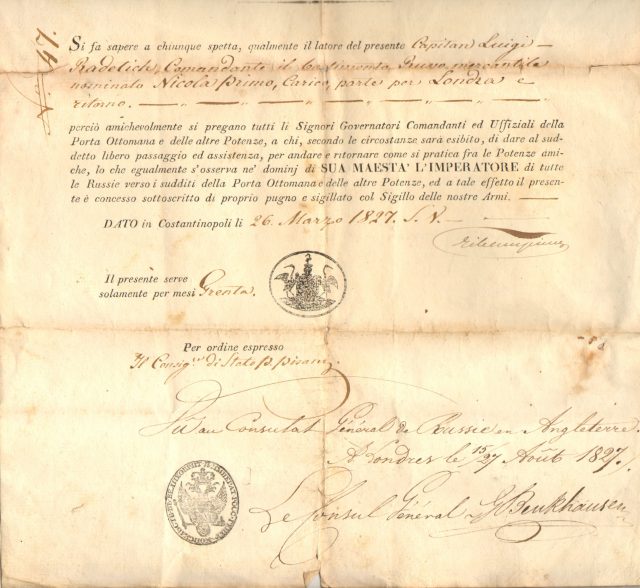 Si fa sapere a chiunque spetta, qualmente il latore del presente Capitan Luigi —
Radelich, Comandante il Russo mercantile
nominato Nicola Primo, Carico, parte per Londra e
ritorno. —
perciò amichevolmente si pregano tutti li Signori Governatori Comandanti ed Uffiziali della
Porta Ottomana e delle altre Potenze, a chi, secondo le circostanze sarà esibito, di dare al sud-
detto libero passaggio ed assistenza, per andare e ritornare come si pratica fra le Potenze ami-
che, lo che egualmente s'osserva ne' dominj di SUA MAESTA' L'IMPERATORE di tutte
le Russie verso i sudditi della Porta Ottomana e delle altre Potenze, ed a tale effetto il presen-
te è concesso sottoscritto di proprio pugno e sigillato col Sigillo delle nostre Armi. —
DATO in Costantinopoli li 26. Marzo 1827. S. V. —
Il presente serve
solamente per mesi Trenta.
Per ordine espresso
Il Consigre di Stato P. Pisani
Vu au Consulat Général de Russie en Angleterre.
à Londres le 15/27 Août 1827.
Le Consul Général Benkhausen